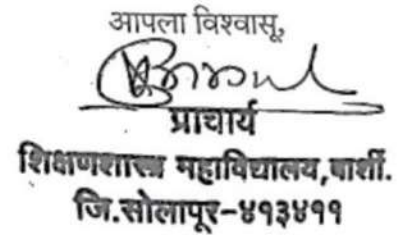 आपला विश्वासू,
प्राचार्य
शिक्षणशास्त्र महाविद्यालय,बार्शी.
जि.सोलापूर-४१३४११